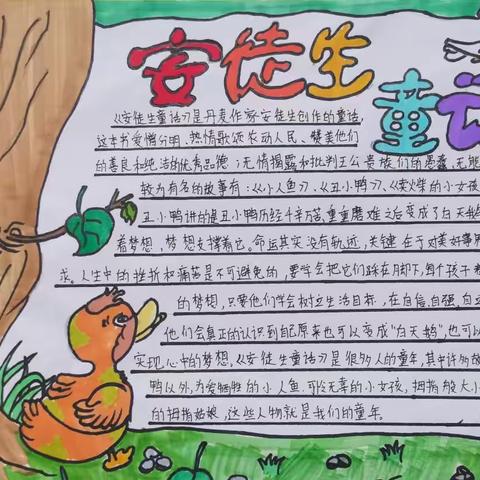 安徒生
童话
《安徒生童话》是丹麦作家安徒生创作的童话,
这本书爱憎分明,热情歌颂劳动人民、赞美他们
的善良和纯洁的优秀品德;无情揭露和批判王公贵族们的愚蠢、无能
较为有名的故事有:《小人鱼》、《丑小鸭》、《卖火柴的小女孩
丑小鸭讲的是丑小鸭历经千辛万苦、重重磨难之后变成了白天鹅
着梦想,梦想支撑着它。命运其实没有轨迹,关键在于对美好事
求。人生中的挫折和痛苦是不可避免的,要学会把它们踩在脚下,每个孩子
的梦想,只要他们学会树立生活目标,在自信、自强、自立
他们会真正的认识到自己原来也可以变成“白天鹅”,也可以
实现心中的梦想。《安徒生童话》是很多人的童年,其中许多故
鸭以外,为爱牺牲的小人鱼,可怜无辜的小女孩,拇指般大小
的拇指姑娘,这些人物就是我们的童年。